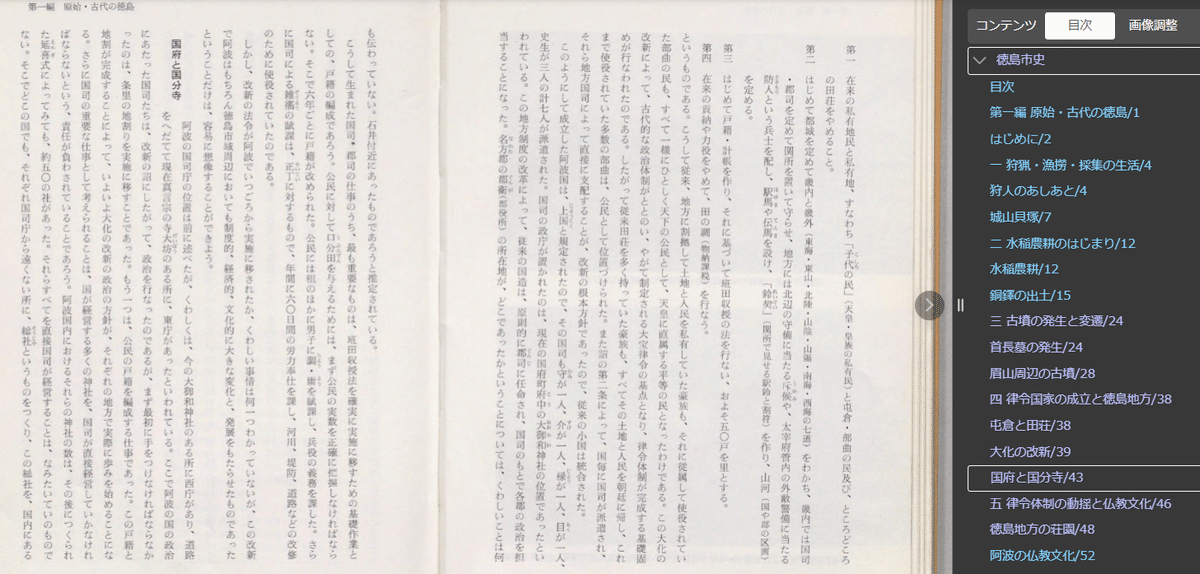 第一 在来の私有地民と私有地、すなわち「子代の民」（天皇・皇族の私有民）と屯倉・部曲の民及び、ところどころ
の田荘をやめること。
第二 はじめて都城を定めて畿内と畿外（東海・東山・北陸・山陰・山陽・南海・西海の七道）をわかち、畿内では国司
・郡司を定めて関所を置いて守らせ、地方には北辺の守備に当たる斥候や、太宰府管内の外敵警備に当たる
防人という兵士を配し、駅馬や伝馬を設け、「鈴契」（関所で見せる駅鈴と割符）を作り、山河（国や郡の区画）
を定める。
第三 はじめて戸籍・計帳を作り、それに基づいて班田収授の法を行ない、およそ五〇戸を里とする。
第四 在来の貢納や力役をやめて、田の調（物納課税）を行なう。
というものである。こうして従来、地方に割拠して土地と人民を私有していた豪族も、それに従属して使役されてい
た部曲の民も、すべて一様にひとしく天下の公民として、天皇に直属する平等の民となったわけである。この大化の
改新によって、古代的な政治体制がととのい、やがて制定される大宝律令の基点となり、律令体制が完成する基礎固
めが行なわれたのである。したがって従来田荘を多く持っていた豪族も、すべてその土地と人民を朝廷に帰し、これ
まで使役されていた多数の部曲は、公民として位置づけられた。また詔の第二条によって、国毎に国司が派遣され、
それら地方国司によって直接に支配するとが、改新の根本方針であったので、従来の小国は統合された。
このようにして成立した阿波国は、上国と規定されたので、その国司も守が一人、介が一人、掾が一人、目が一人、
史生が三人の計七人が派遣された。国司の政庁が置かれたのは、現在の国府町府中の大御和神社の位置であったとい
われている。この地方制度の改革によって、従来の国造は、原則的に郡司に任命され、国司のもとで各郡の政治を担
当することになった。名方郡の郡衙（郡役所）の所在地が、どこであったかということについては、くわしいことは何
第一編 原始・古代の徳島
も伝わっていない。石井付近にあったものであろうと推定されている。
こうして生まれた国司、郡司の仕事のうち、最も重要なものは、班田収授法を確実に実施に移すための基礎作業と
しての、戸籍の編成であろう。公民に対して口分田を与えるためには、まず公民の実数を正確に把握しなければなら
ない。そこで六年ごとに戸籍が改められた。公民には租のほかに男子に調・庸を賦課し、兵役の義務を課した。さら
に国司による雑徭の賦課は、正丁に対するもので、年間に六〇日間の労力奉仕を課し、河川、堤防、道路などの改修
のために使役されていたのである。
しかし、改新の法令が阿波でいつごろから実施に移されたか、くわしい事情は何一つわかっていないが、この改新
で阿波はもちろん徳島市域周辺においても制度的、経済的、文化的に大きな変化と、発展をもたらせたものであった
ということだけは、容易に想像することができよう。
国府と国分寺
阿波の国司庁の位置は前に述べたが、くわしくは、今の大御和神社のある所に西庁があり、道路
をへだてて現在真言宗の寺大坊のある所に、東庁があったといわれている。ここで阿波の国の政治
にあたった国司たちは、改新の詔にしたがって、政治を行なったのであるが、まず最初に手をつけなければならなか
ったのは、条里の地割りを実施に移すことであった。もう一つは、公民の戸籍を編成する仕事であった。この戸籍と
地割が完成することによって、いよいよ大化の改新の政治の方針が、それぞれの地方で実際に歩みを始めることにな
る。さらに国司の重要な仕事として考えられることは、国が経営する多くの神社を、国司が直接経営していかなけれ
ばならないという、責任が負わされていることであろう。阿波国内におけるそれらの神社の数は、その後につくられ
た延喜式によってみても、約五〇の社があった。それらすべてを直接国司が経営することは、なみたいていのもので
ない。そこでどこの国でも、それぞれ国司庁から遠くない所に、総社というものをつくり、この総社を、国内にある
コンテンツ 目次 画像調整
徳島市史
目次
第一編 原始・古代の徳島/1
はじめに/2
一 狩猟・漁撈・採集の生活/4
狩人のあしあと/4
城山貝塚/7
二 水稲農耕のはじまり/12
水稲農耕/12
銅鐸の出土/15
三 古墳の発生と変遷/24
首長墓の発生/24
眉山周辺の古墳/28
四 律令国家の成立と徳島地方/38
屯倉と田荘/38
大化の改新/39
国府と国分寺/43
五 律令体制の動揺と仏教文化/46
徳島地方の荘園/48
阿波の仏教文化/52